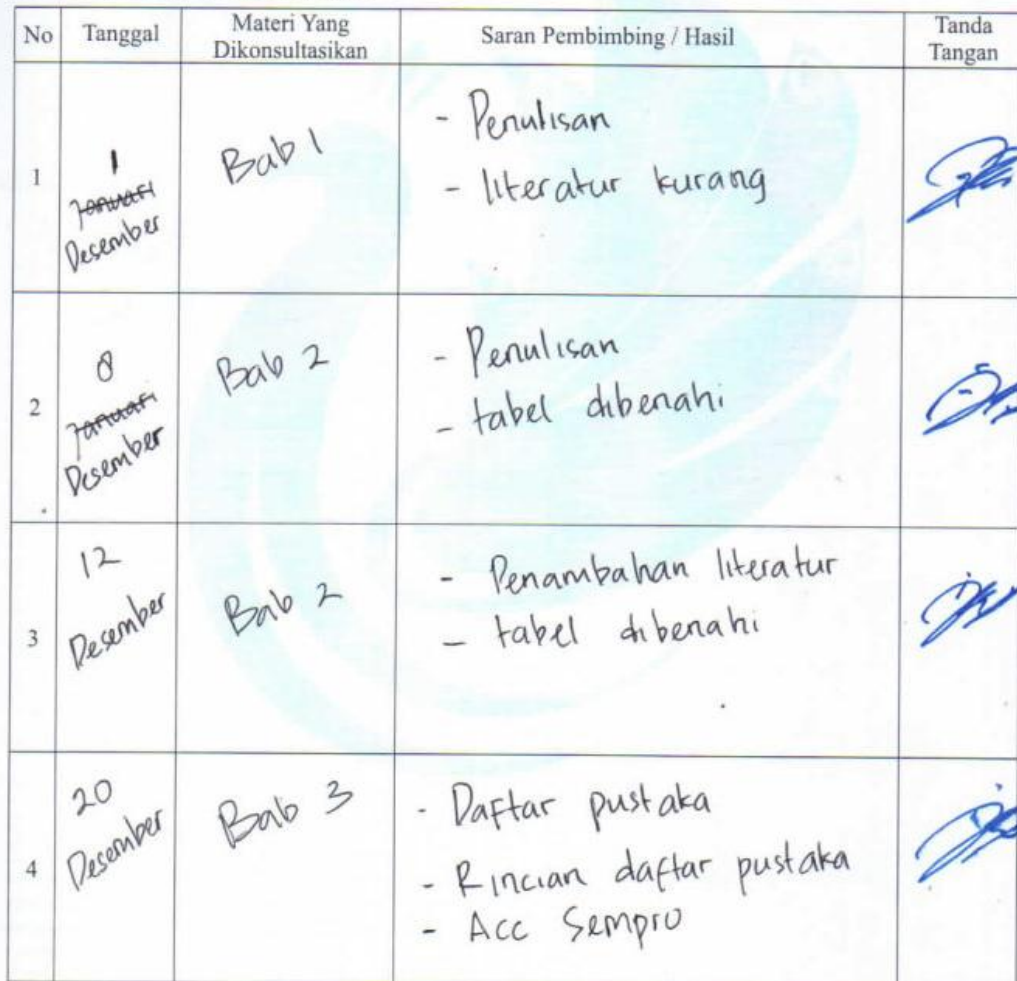 No Tanggal Materi Yang Dikonsultasikan Saran Pembimbing / Hasil Tanda Tangan
1
1
Januari
Desember
Bab 1
- Penulisan
- literatur kurang
2
8
Januari
Desember
Bab 2
- Penulisan
- tabel dibenahi
3
12
Desember
Bab 2
- Penambahan literatur
- tabel dibenahi
4
20
Desember
Bab 3
- Daftar pustaka
- Rincian daftar pustaka
- Acc Sempro